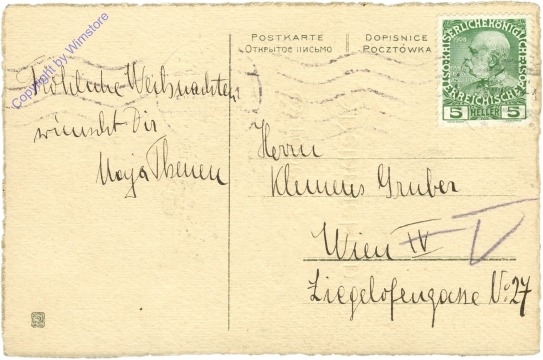 Copyright by Wimstore
POSTKARTE
ОТКРЫТОЕ ПИСЬМО
DOPISNICE
POCZTÓWKA
KAISERLICHE KÖNIGLICHE ÖSTERREICHISCHE POST
1908
5 HELLER 5
Fröhliche Weihnachten
wünscht Dir
Maja Thenen
Herrn
Klemens Gruber
Wien IV V
Ziegelofengasse No. 27